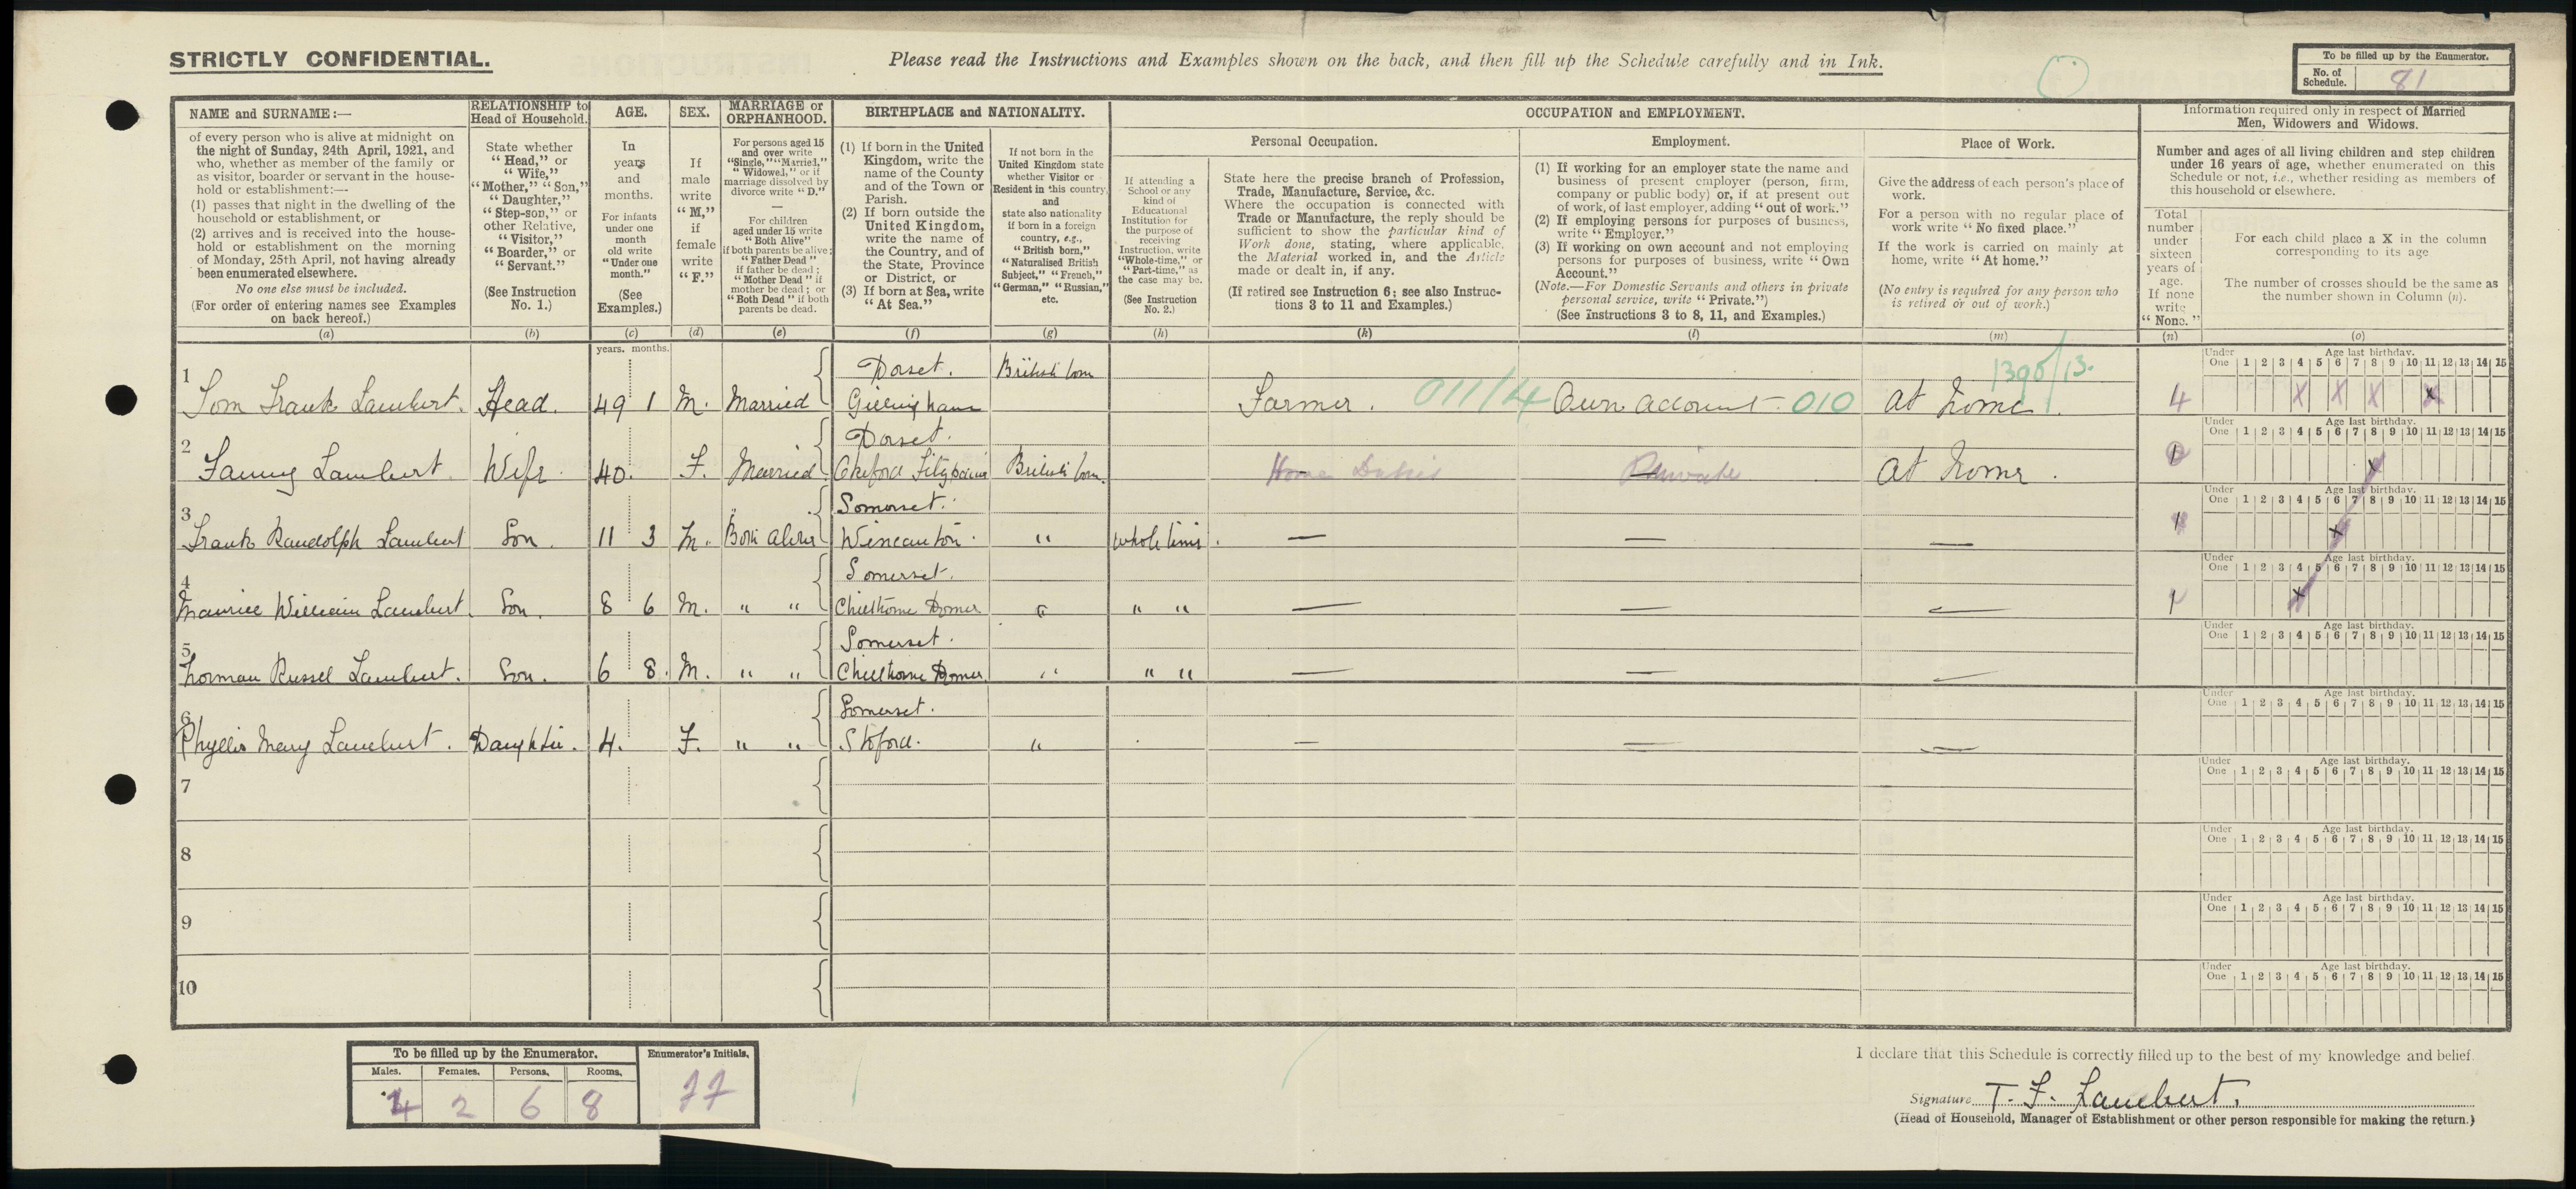 STRICTLY CONFIDENTIAL.
Please read the Instructions and Examples shown on the back, and then fill up the Schedule carefully and in Ink.
To be filled up by the Enumerator.
No. of Schedule. 81
NAME and SURNAME:—
of every person who is alive at midnight on
the night of Sunday, 24th April, 1921, and
who, whether as member of the family or
as visitor, boarder or servant in the house-
hold or establishment:—
(1) passes that night in the dwelling of the
household or establishment, or
(2) arrives and is received into the house-
hold or establishment on the morning
of Monday, 25th April, not having already
been enumerated elsewhere.
No one else must be included.
(For order of entering names see Examples
on back hereof.)
(a)
RELATIONSHIP to
Head of Household.
State whether
"Head," or
"Wife,"
"Mother," "Son,"
"Daughter,"
"Step-son," or
other Relative,
"Visitor,"
"Boarder," or
"Servant."
(See Instruction
No. 1.)
(b)
AGE.
In
years
and
months.
For infants
under one
month
old write
"Under one
month."
(See
Examples.)
(c)
SEX.
If
male
write
"M,"
if
female
write
"F."
(d)
MARRIAGE or
ORPHANHOOD.
For persons aged 15
and over write
"Single," "Married,"
"Widowed," or if
marriage dissolved by
divorce write "D."
—
For children
aged under 15 write
"Both Alive"
if both parents be alive;
"Father Dead"
if father be dead;
"Mother Dead" if
mother be dead; or
"Both Dead" if both
parents be dead.
(e)
BIRTHPLACE and NATIONALITY.
(1) If born in the United
Kingdom, write the
name of the County
and of the Town or
Parish.
(2) If born outside the
United Kingdom,
write the name of
the Country, and of
the State, Province
or District, or
(3) If born at Sea, write
"At Sea."
(f)
If not born in the
United Kingdom state
whether Visitor or
Resident in this country,
and
state also nationality
if born in a foreign
country, e.g.,
"British born,"
"Naturalised British
Subject," "French,"
"German," "Russian,"
etc.
(g)
OCCUPATION and EMPLOYMENT.
Personal Occupation.
If attending a
School or any
kind of
Educational
Institution for
the purpose of
receiving
Instruction, write
"Whole-time," or
"Part-time," as
the case may be.
(See Instruction
No. 2.)
(h)
State here the precise branch of Profession,
Trade, Manufacture, Service, &c.
Where the occupation is connected with
Trade or Manufacture, the reply should be
sufficient to show the particular kind of
Work done, stating, where applicable,
the Material worked in, and the Article
made or dealt in, if any.
(If retired see Instruction 6; see also Instruc-
tions 3 to 11 and Examples.)
(k)
Employment.
(1) If working for an employer state the name and
business of present employer (person, firm,
company or public body) or, if at present out
of work, of last employer, adding "out of work."
(2) If employing persons for purposes of business,
write "Employer."
(3) If working on own account and not employing
persons for purposes of business, write "Own
Account."
(Note.—For Domestic Servants and others in private
personal service, write "Private.")
(See Instructions 3 to 8, 11, and Examples.)
(l)
Place of Work.
Give the address of each person's place of
work.
For a person with no regular place of
work write "No fixed place."
If the work is carried on mainly at
home, write "At home."
(No entry is required for any person who
is retired or out of work.)
(m)
Information required only in respect of Married
Men, Widowers and Widows.
Number and ages of all living children and step children
under 16 years of age, whether enumerated on this
Schedule or not, i.e., whether residing as members of
this household or elsewhere.
Total
number
under
sixteen
years of
age.
If none
write
"None."
(n)
For each child place a X in the column
corresponding to its age
The number of crosses should be the same as
the number shown in Column (n).
(o)
years. months.
Under One 1 2 3 4 5 6 7 8 9 10 11 12 13 14 15
Age last birthday.
1 Tom Frank Lambert. Head. 49 1 M. Married Dorset. Gillingham British born Farmer. 011/4 Own account 010 At Home. 1390/13. 4 X X X X
Under One 1 2 3 4 5 6 7 8 9 10 11 12 13 14 15
Age last birthday.
2 Fanny Lambert Wife. 40. F. Married Dorset. Okeford Fitzpaine British born. Home Duties Private At Home. 1 X
Under One 1 2 3 4 5 6 7 8 9 10 11 12 13 14 15
Age last birthday.
3 Frank Randolph Lambert Son. 11 3 M. Both alive Somerset. Wincanton. " whole time. — — — 1 X
Under One 1 2 3 4 5 6 7 8 9 10 11 12 13 14 15
Age last birthday.
4 Maurice William Lambert. Son. 8 6 M. " " Somerset. Chilthorne Domer " " " — — — 1 X
Under One 1 2 3 4 5 6 7 8 9 10 11 12 13 14 15
Age last birthday.
5 Norman Russel Lambert. Son. 6 8. M. " " Somerset. Chilthorne Domer " " " — — —
Under One 1 2 3 4 5 6 7 8 9 10 11 12 13 14 15
Age last birthday.
6 Phyllis Mary Lambert. Daughter. 4. F. " " Somerset. Stoford. " — — —
Under One 1 2 3 4 5 6 7 8 9 10 11 12 13 14 15
Age last birthday.
7
Under One 1 2 3 4 5 6 7 8 9 10 11 12 13 14 15
Age last birthday.
8
Under One 1 2 3 4 5 6 7 8 9 10 11 12 13 14 15
Age last birthday.
9
Under One 1 2 3 4 5 6 7 8 9 10 11 12 13 14 15
Age last birthday.
10
Under One 1 2 3 4 5 6 7 8 9 10 11 12 13 14 15
Age last birthday.
To be filled up by the Enumerator.
Enumerator's Initials.
Males. Females. Persons. Rooms.
4 2 6 8
I declare that this Schedule is correctly filled up to the best of my knowledge and belief.
Signature T. F. Lambert.
(Head of Household, Manager of Establishment or other person responsible for making the return.)